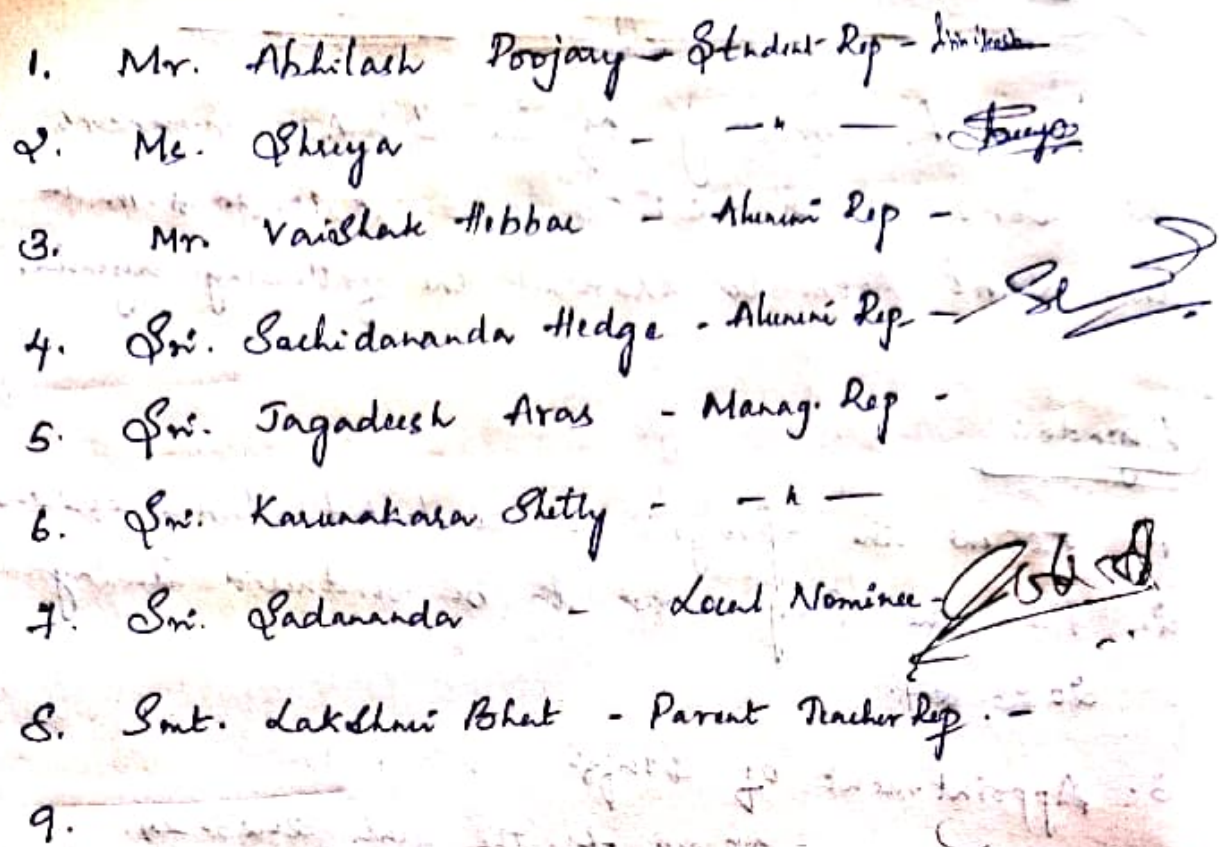 1. Mr. Abhilash Poojary - Student Rep -
2. Ms. Shreya - — " — . Shreya
3. Mr. Vaishak Hebbar - Alumini Rep -
4. Sri. Sachidananda Hedge - Alumini Rep -
5. Sri. Jagadeesh Aras - Manag. Rep -
6. Sri. Karunakara Shetty - — " —
7. Sri. Sadananda - Local Nominee -
8. Smt. Lakshmi Bhat - Parent Teacher Rep. -
9.